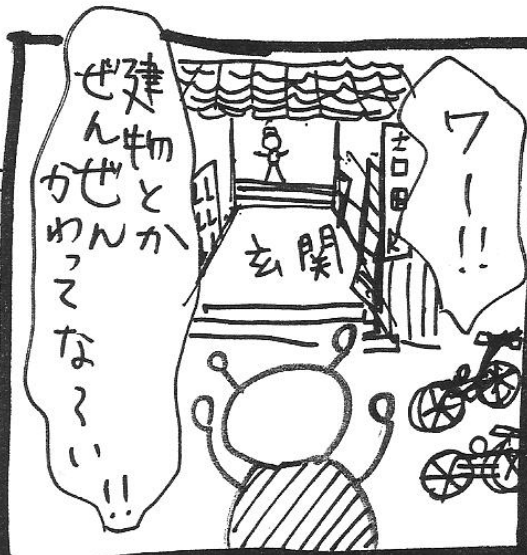 ワー!!
建物とか
ぜんぜん
かわってな〜い!!
玄関